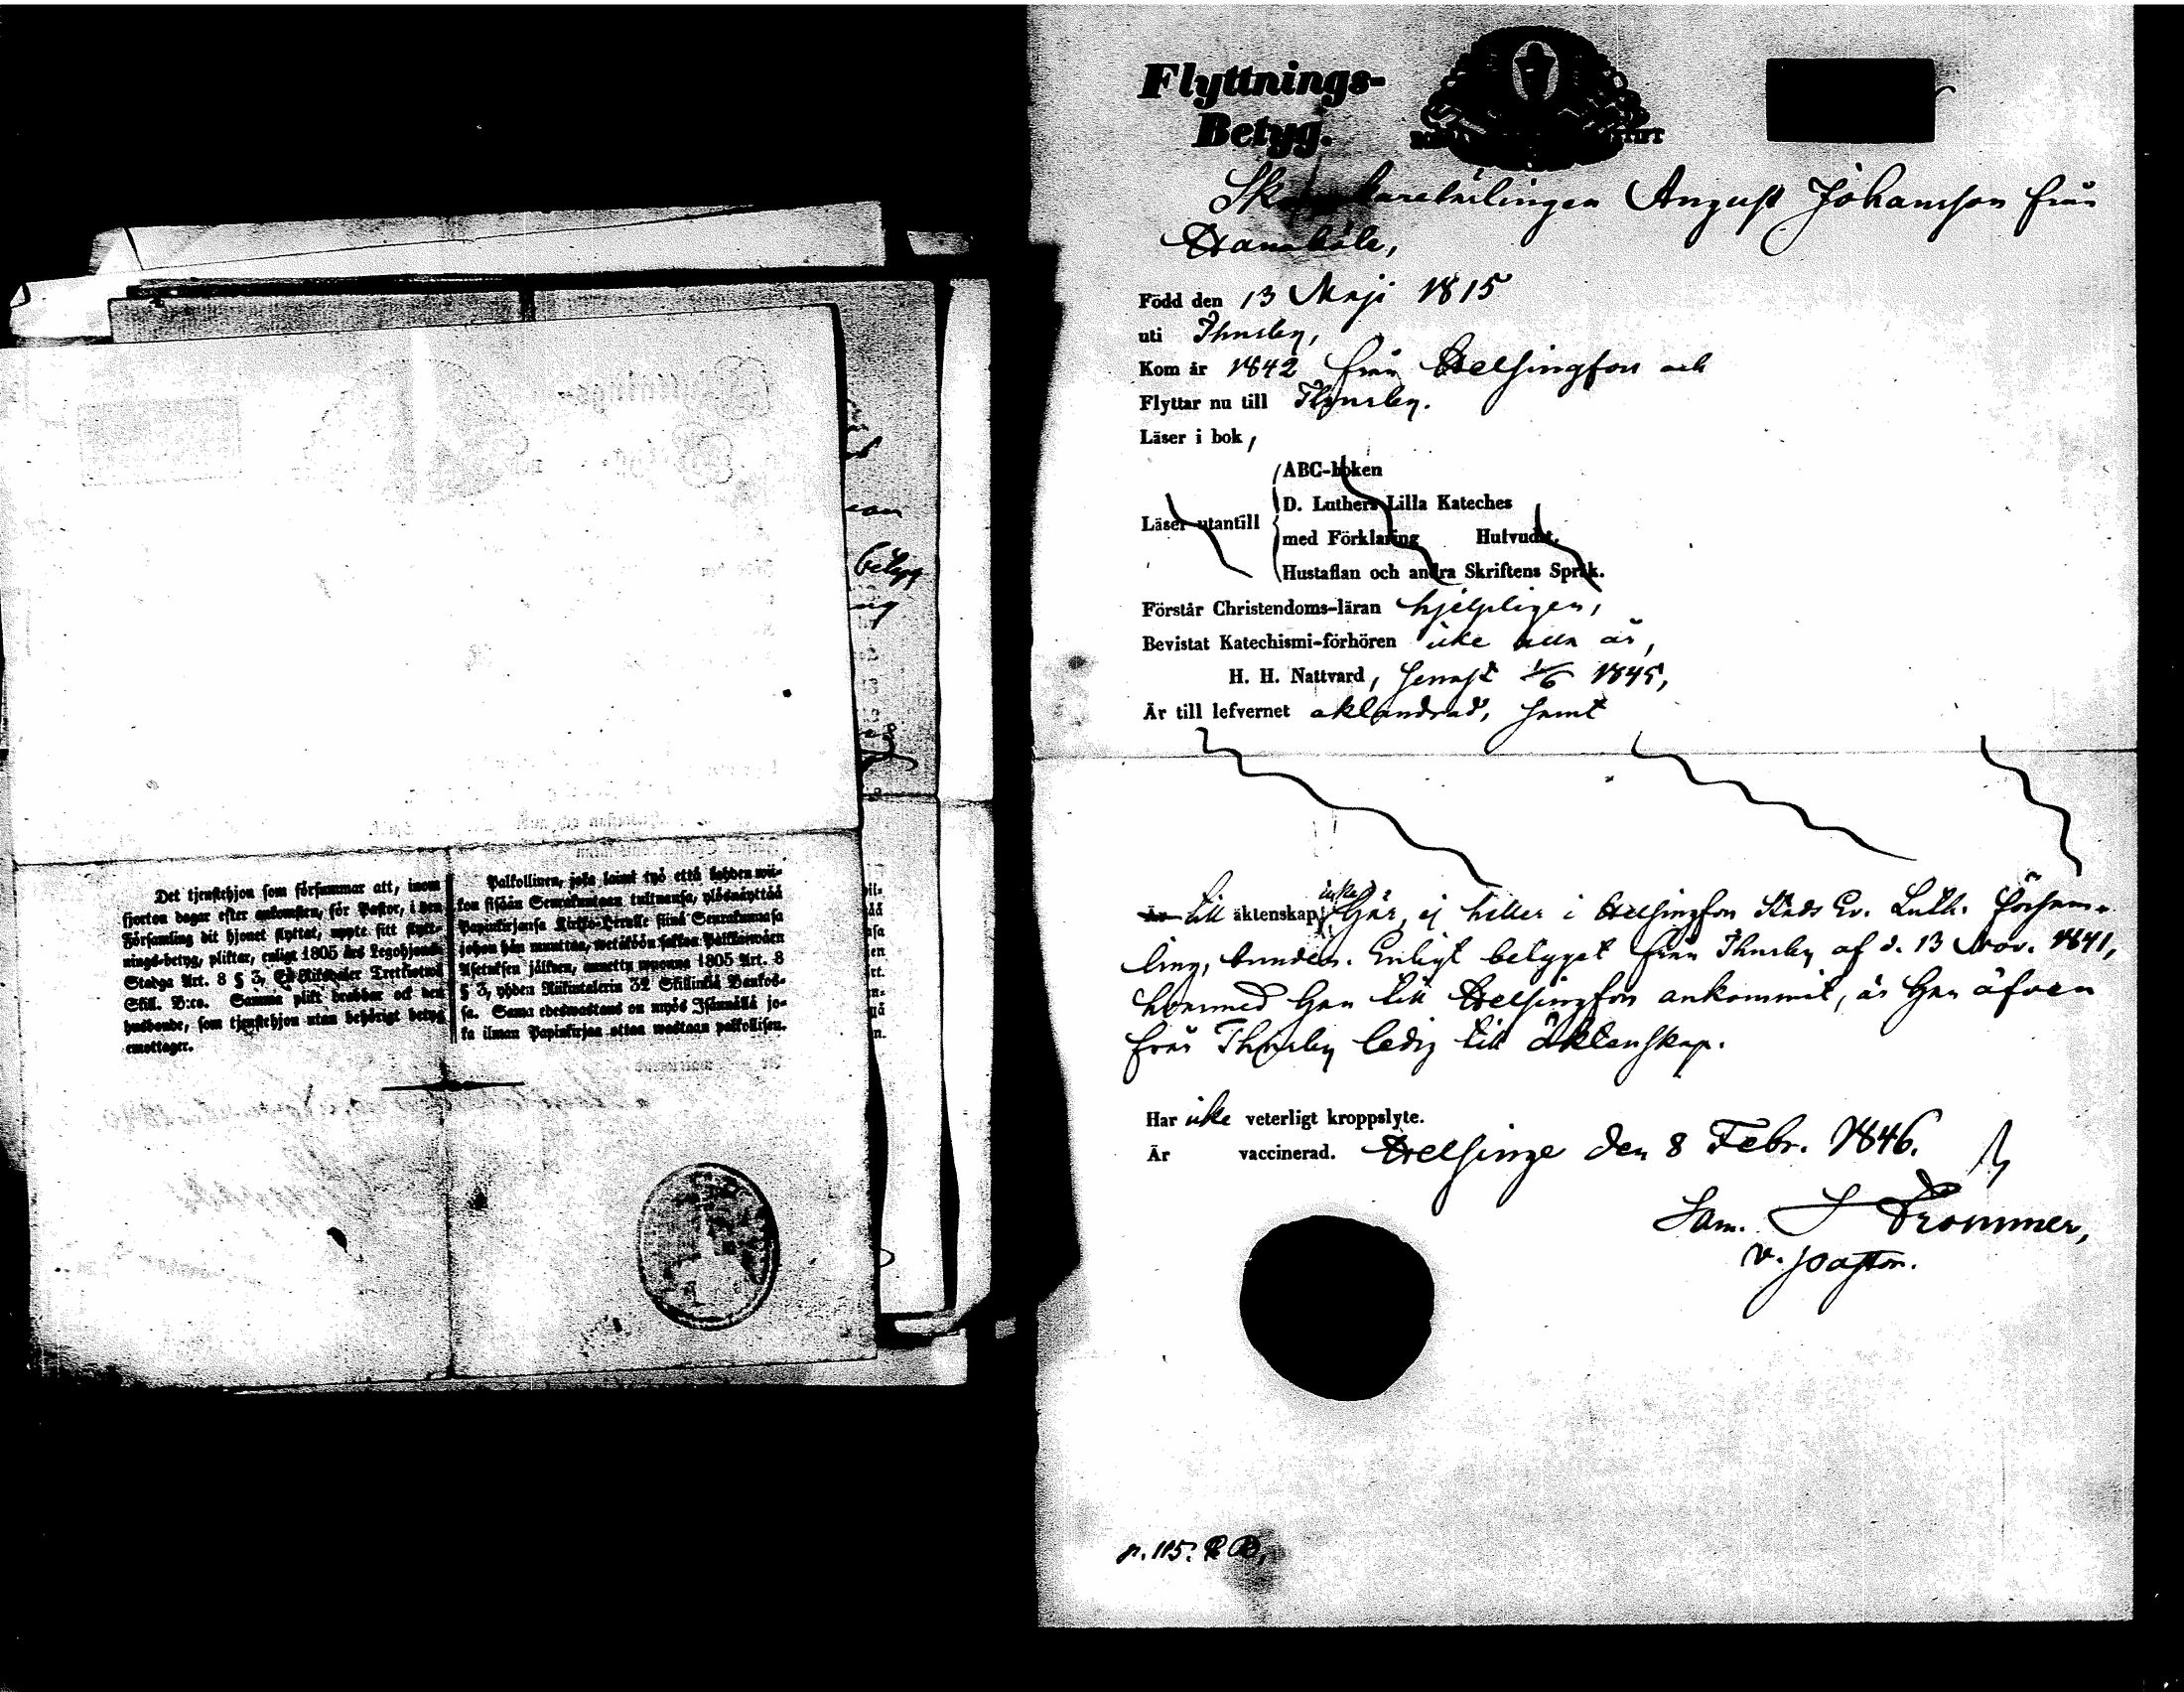 Det tjenstehjon som försummar att, inom
fjorton dagar efter ankomsten, för Pastor, i den
Församling dit hjonet flyttat, uppte sitt flytt-
nings-betyg, pliktar, enligt 1805 års Legohjons-
Stadga Art. 8 § 3, En Riksdaler Trettiotvå
Skill. B:co. Samma plikt drabbar ock den
husbonde, som tjenstehjon utan behörigt betyg
emottager.
Palkollinen, joka laimi lyö että kahden wii-
kon sisään Seurakuntaan tultuansa, ylösnäyttää
Papinkirjansa Kirkko-Herralle siinä Seurakunnassa
johon hän muuttaa, wetäköön sakkoa Palkkawäen
Asetuksen jälkeen, annettu wuonna 1805 Art. 8
§ 3, yhden Riikintalerin 32 Skillinkiä Bankos-
sa. Sama edeswastaus on myös Isännällä jo-
ka ilman Papinkirjaa ottaa wastaan palkollisen.
betyg
Flyttnings-
Betyg.
August Johansson från
Född den 13 Maji 1815
uti Thusby,
Kom år 1842 från Helsingfors och
Flyttar nu till Thusby.
Läser i bok,
Läser utantill
ABC-boken
D. Luthers Lilla Kateches
med Förklaring Hufvudst.
Hustaflan och andra Skriftens Språk.
Förstår Christendoms-läran hjelpligen,
Bevistat Katechismi-förhören icke alla år,
H. H. Nattvard, senast 1/6 1845,
Är till lefvernet oklandrad, samt
Är till äktenskap icke här, ej heller i Helsingfors Stads Ev. Luth. Försam-
ling, bunden. Enligt betyget från Thusby af d. 13 Nov. 1841,
hvarmed han till Helsingfors ankommit, är han äfven
från Thusby ledig till äktenskap.
Har icke veterligt kroppslyte.
Är vaccinerad. Helsinge den 8 Febr. 1846.
Sam. J Frommer,
v. pastor.
p. 115.